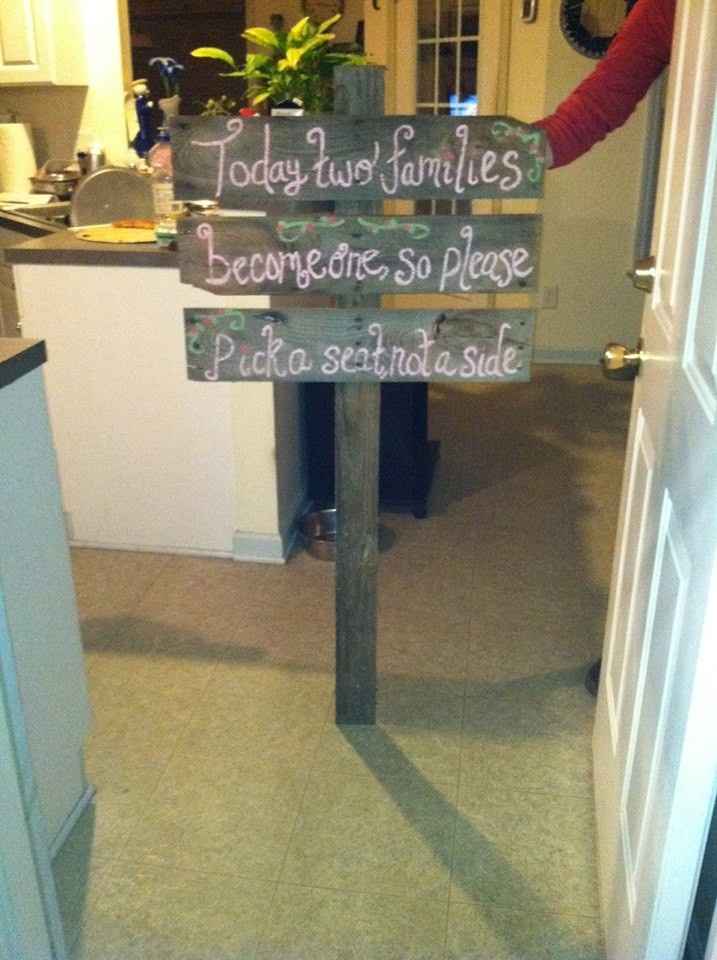 Today two families
become one, so please
Pick a seat, not a side